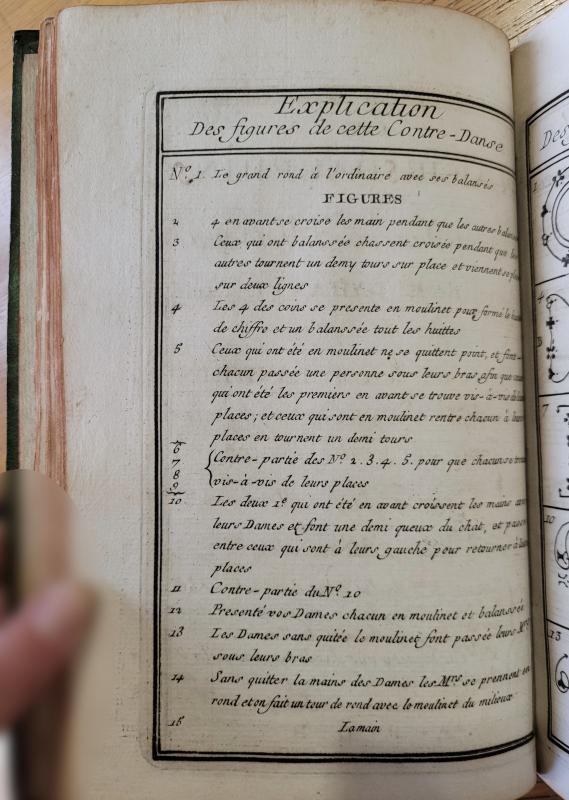 Explication
Des figures de cette Contre-Danse
N.º 1. Le grand rond à l'ordinaire avec ses balansés
FIGURES
2 4 en avant se croise les main pendant que les autres
3 Ceux qui ont balanssée chassent croisée pendant que
autres tournent un demy tours sur place et viennent se
sur deux lignes
4 Les 4 des coins se presente en moulinet pour forme le
de chiffre et un balanssée tout les huittes
5 Ceux qui ont été en moulinet ne se quittent point, et
chacun passée une personne sous leurs bras afin que
qui ont été les premiers en avant se trouve vis-à-vis
places; et ceux qui sont en moulinet rentre chacun à
places en tournent un demi tours
6
7 Contre-partie des N.º 2.3.4.5. pour que chacun se
8 vis-à-vis de leurs places
9
10 Les deux 1.e qui ont été en avant croissent les mains
leurs Dames et font une demi queux du chat, et
entre ceux qui sont à leurs gauche pour retourner à
places
11 Contre-partie du N.º 10
12 Presenté vos Dames chacun en moulinet et balanssée
13 Les Dames sans quitée le moulinet font passée leurs
sous leurs bras
14 Sans quitter la mains des Dames les M.rs se prennent en
rond et on fait un tour de rond avec le moulinet du milieux
15 La main
1
4
3
7
10
13